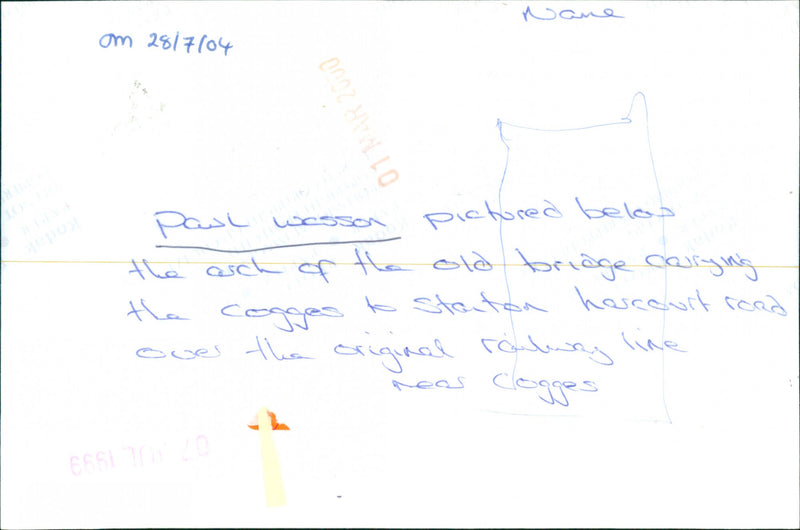 Name
om 28/7/04
01 MAR 2000
Paul Wesson pictured below
the arch of the old bridge carrying
the cogges to Stanton harcourt road
over the original railway line
near Cogges
07 JUL 1999